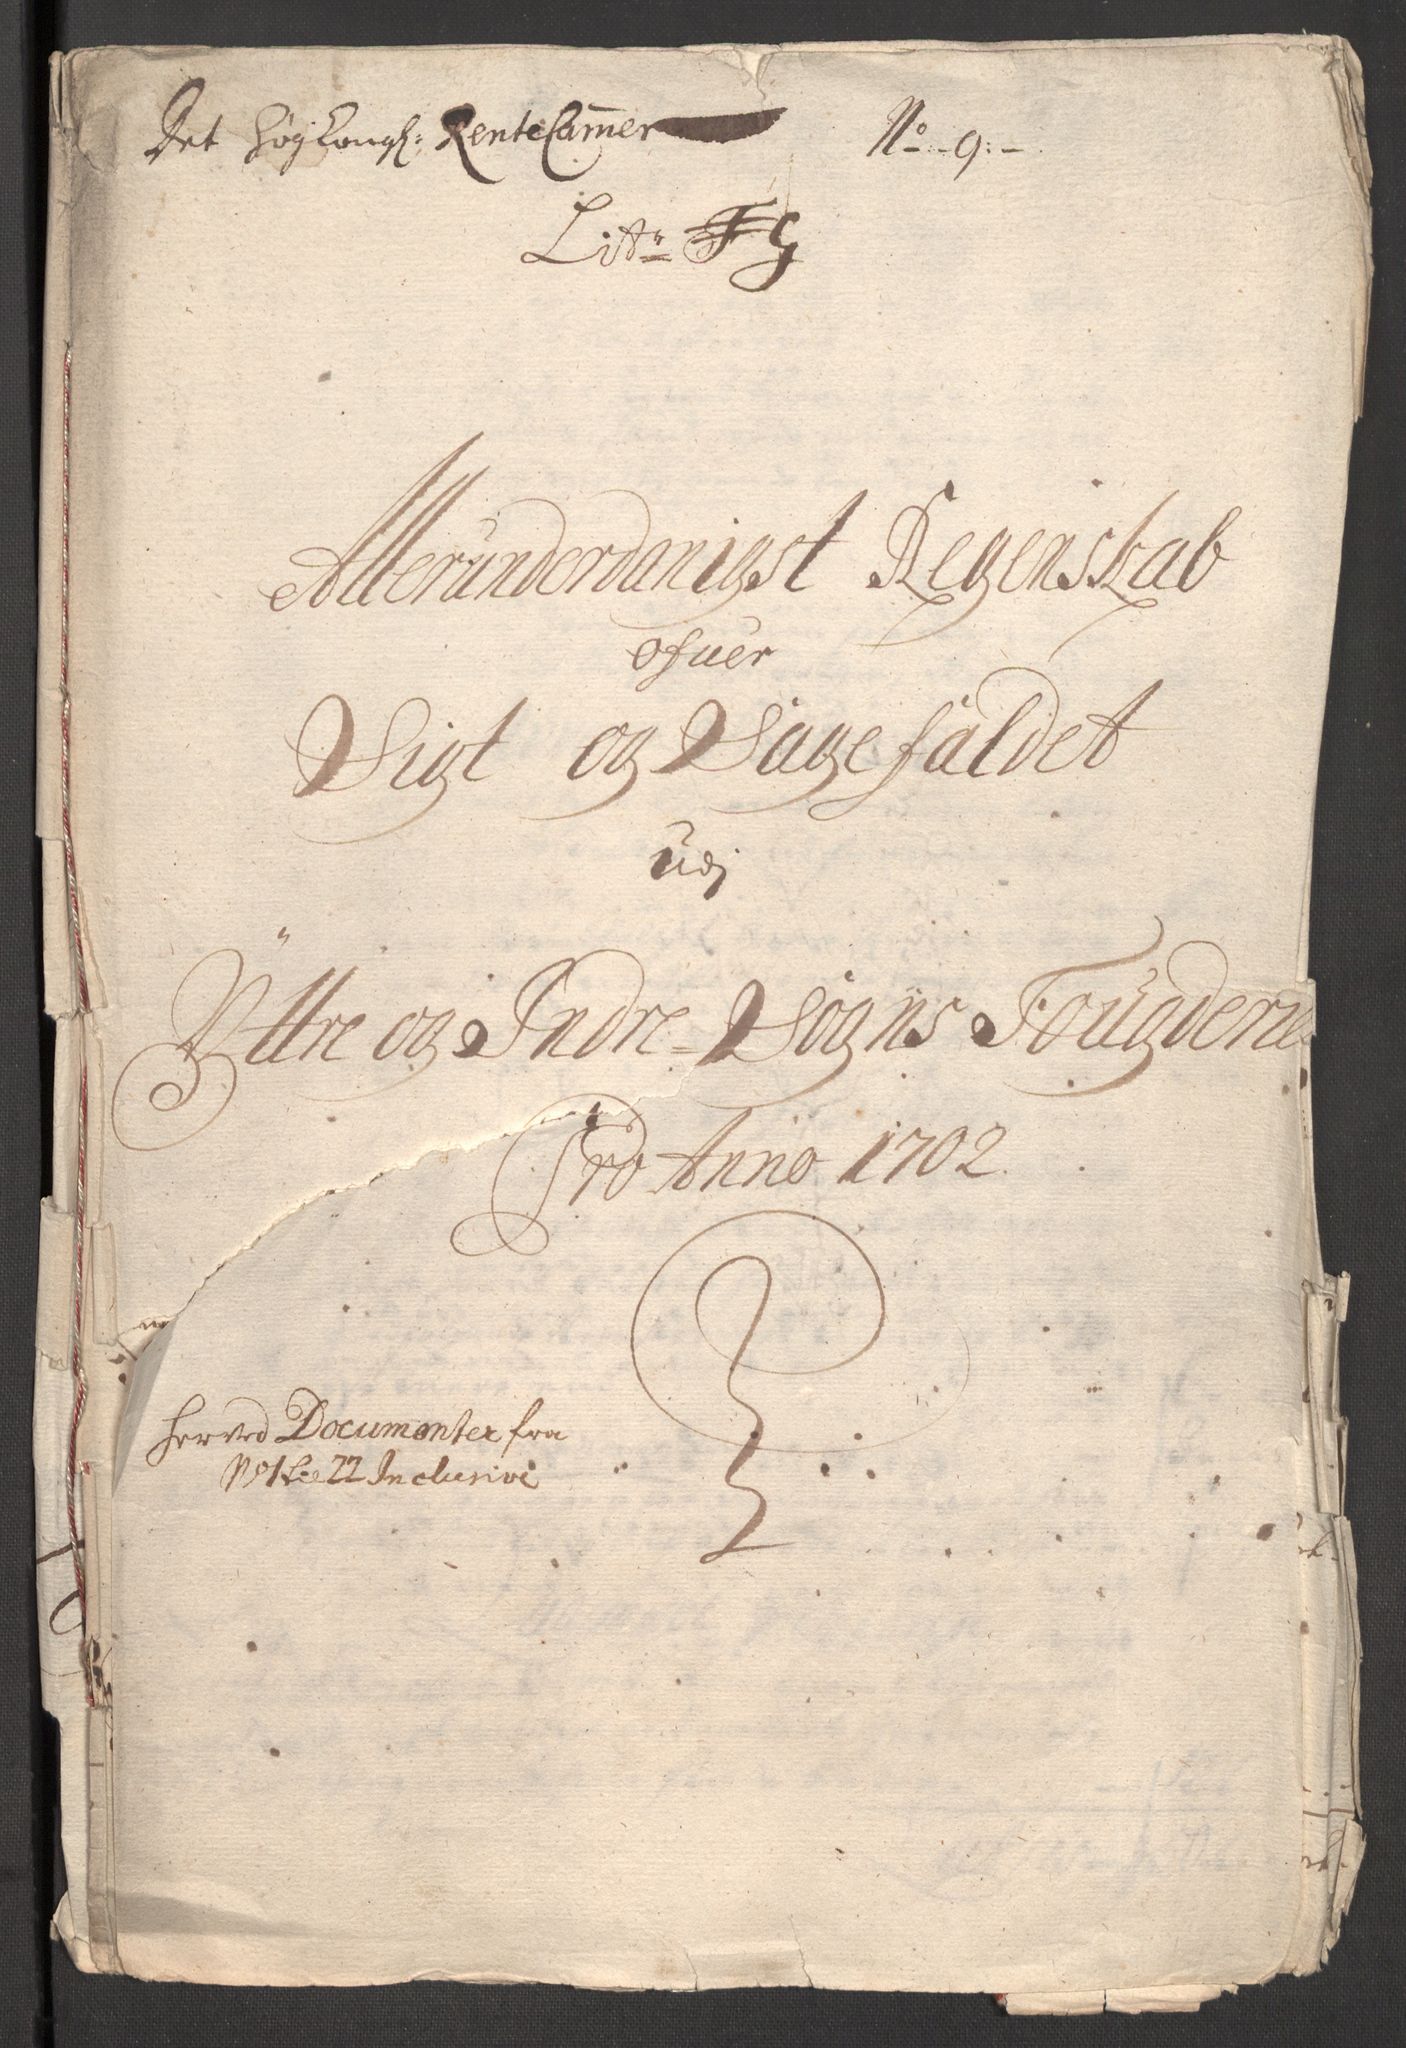 Det høy kongl: Rente Cammer No 9.
Litr G
Allerunderdanigst Regenskab
ofuer
Sigt og Sagefaldet
udj
Yttre og Indre Sogns Fougderie
Pro Anno 1702
herved Documenter fra
No 1 til 22 Inclusive